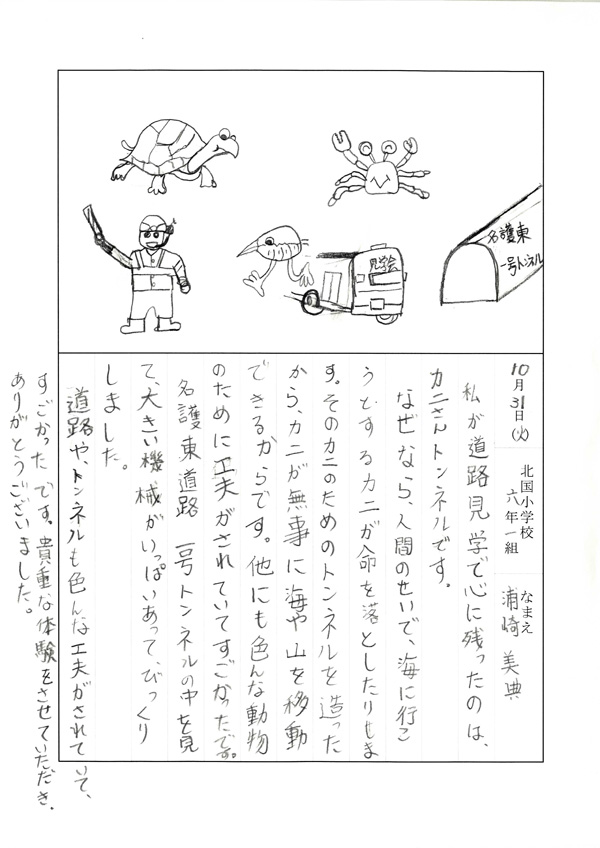 見学会
名護東
一号トンネル
10月31日(火)
北国小学校
六年一組
なまえ
浦崎 美典
私が道路見学で心に残ったのは、
カニさんトンネルです。
なぜなら、人間のせいで、海に行こ
うとするカニが命を落としたりしま
す。そのカニのためのトンネルを造った
から、カニが無事に海や山を移動
できるからです。他にも色んな動物
のために工夫がされていてすごかったです。
名護東道路一号トンネルの中を見
て、大きい機械がいっぱいあって、びっくり
しました。
道路や、トンネルも色んな工夫がされていて、
すごかったです。貴重な体験をさせていただき、
ありがとうございました。